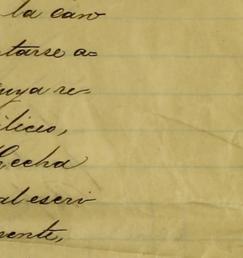 la can
tarse a=
uya re=
ilicio,
Hecha
al escri
mente,